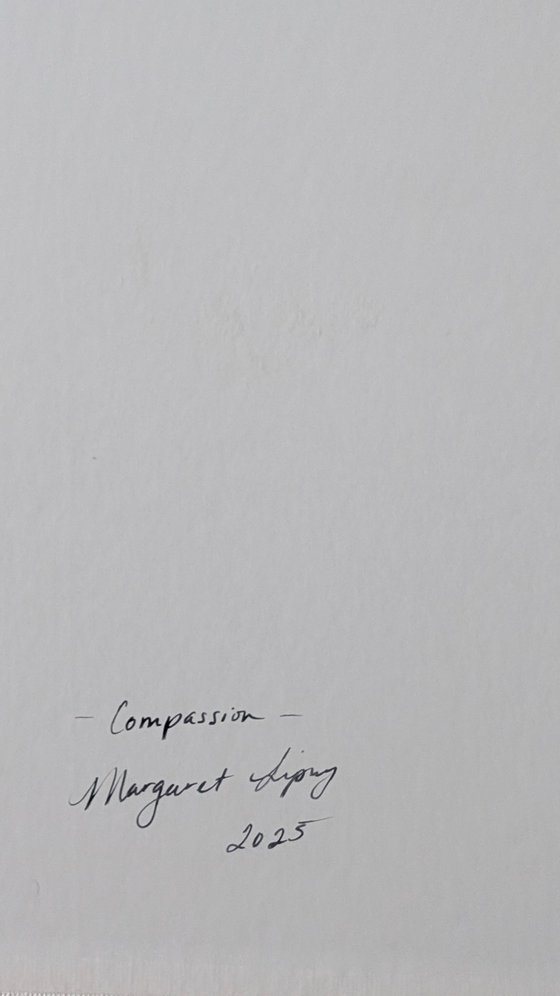 - Compassion -
Margaret
2025